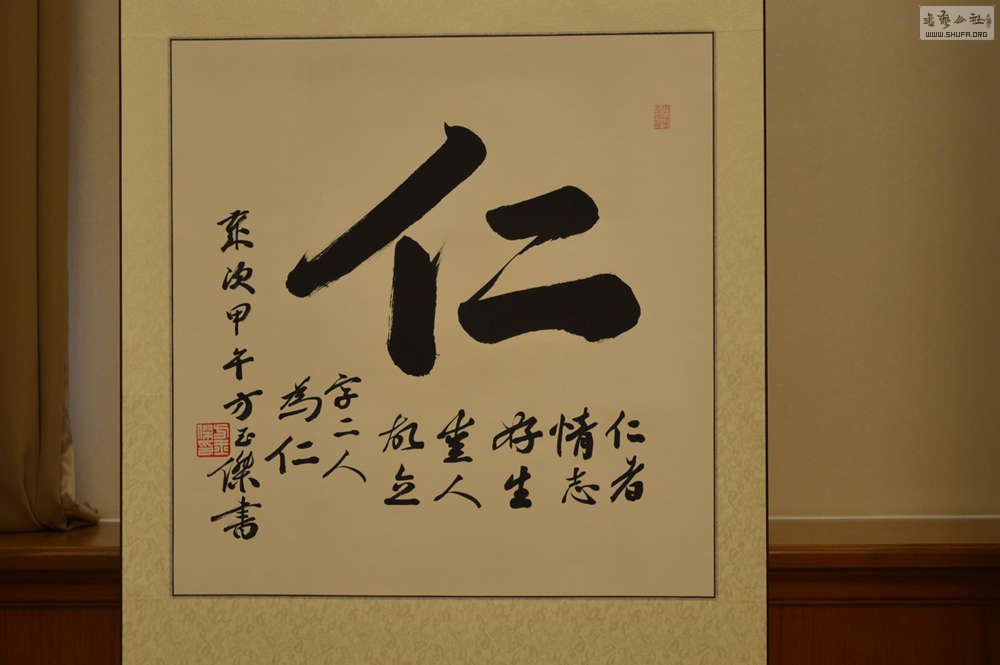 仁
仁者
情志
好生
愛人
故立
字二人
為仁
歲次甲午方玉傑書
書藝公社
WWW.SHUFA.ORG